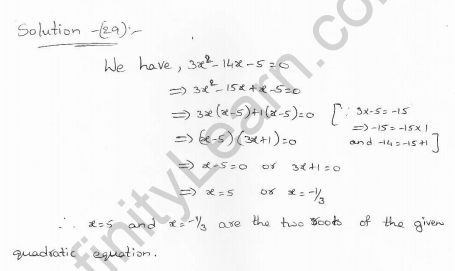 Solution -(29):-
We have, 3x² - 14x - 5 = 0
⇒ 3x² - 15x + x - 5 = 0
⇒ 3x(x-5) + 1(x-5) = 0 [∵ 3x-5 = -15
⇒ (x-5)(3x+1) = 0 ⇒ -15 = -15x1
and -14 = -15+1]
⇒ x-5 = 0 or 3x+1 = 0
⇒ x = 5 or x = -1/3
∴ x=5 and x = -1/3 are the two roots of the given
quadratic equation.
finityLearn.com